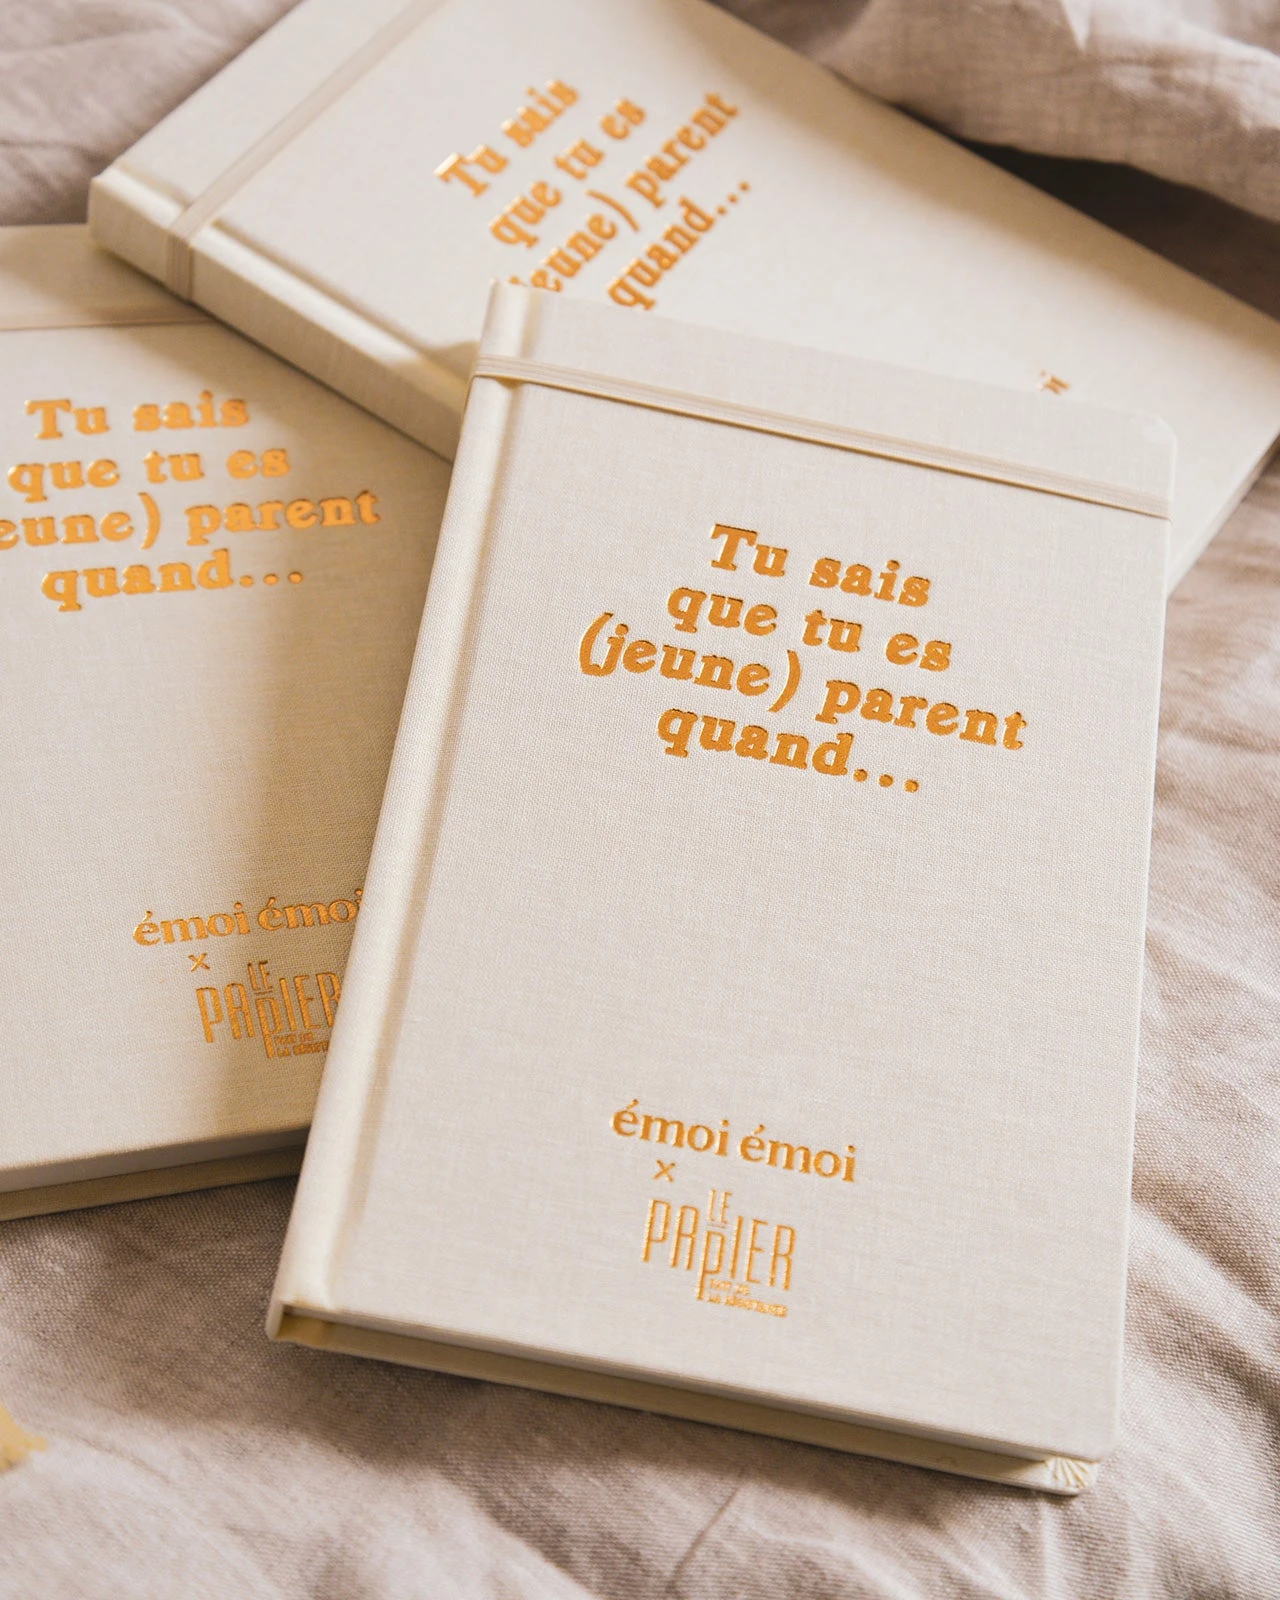 Tu sais
que tu es
jeune) parent
quand...
Tu sais
que tu es
eune) parent
quand...
émoi émoi
x
LE
PAPIER
Tu sais
que tu es
(jeune) parent
quand...
émoi émoi
x
LE
PAPIER